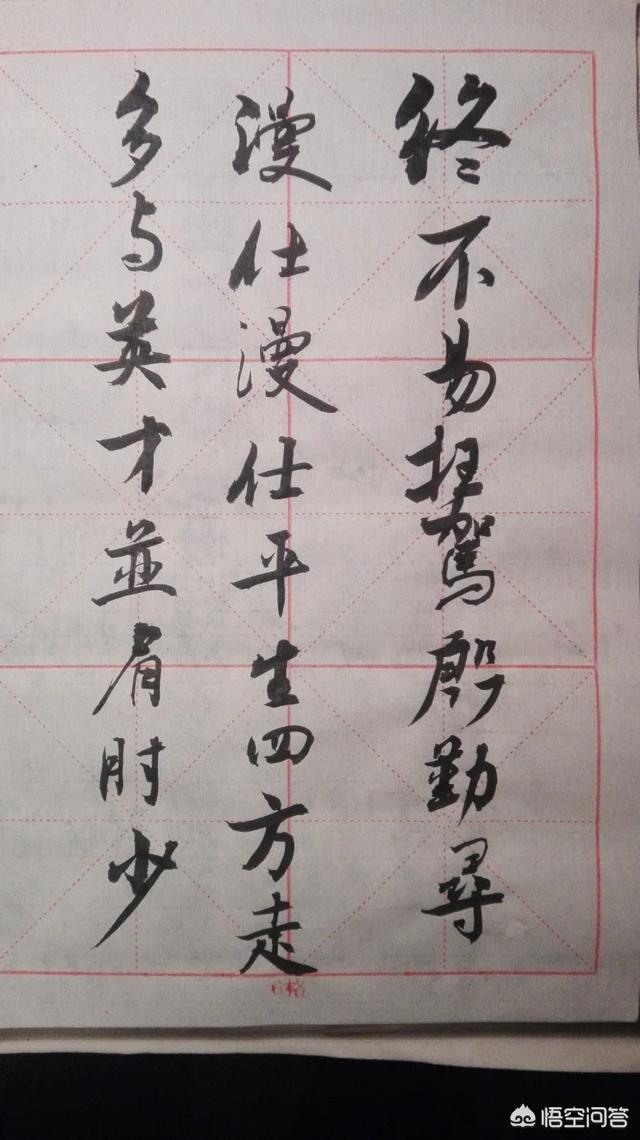 终不易枉驾殷勤寻
漫仕漫仕平生四方走
多与英才並肩肘少
6格
悟空问答